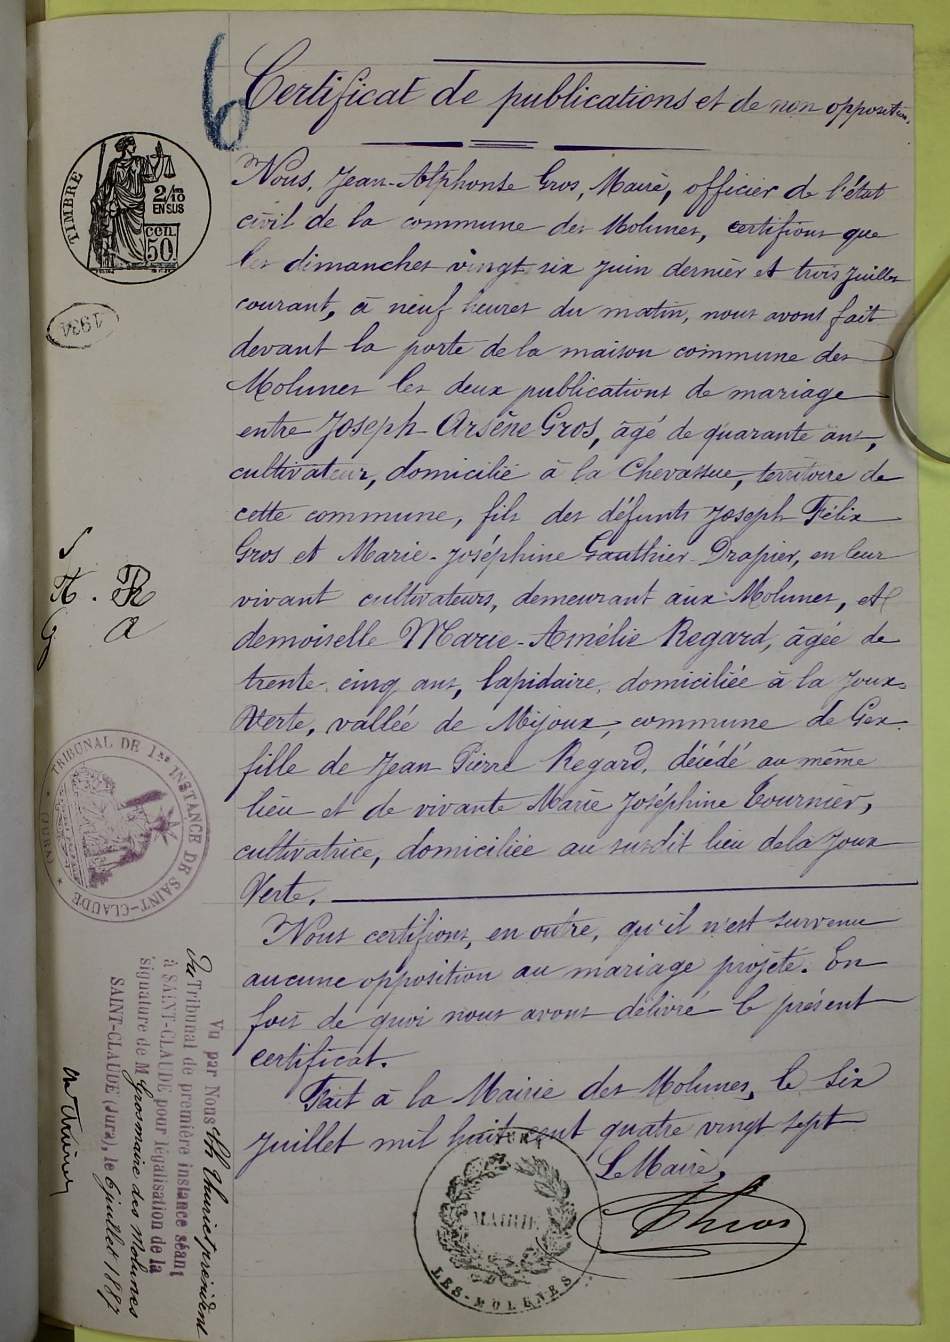 6
Certificat de publications et de non opposition.
TIMBRE
2/10
EN SUS
CEN.
50.
1934
Nous, Jean-Alphonse Gros, Maire, officier de l'état
civil de la commune des Molunes, certifions que
les dimanches vingt six juin dernier et trois juillet
courant, à neuf heures du matin, nous avons fait
devant la porte de la maison commune des
Molunes les deux publications de mariage
entre Joseph Arsène Gros, âgé de quarante ans,
cultivateur, domicilié à la Chevassue, territoire de
cette commune, fils des défunts Joseph Félix
Gros et Marie-Joséphine Gauthier-Drapier, en leur
vivant cultivateurs, demeurant aux Molunes, et
demoiselle Marie-Amélie Regard, âgée de
trente cinq ans, lapidaire, domiciliée à la Joux-
Verte, vallée de Mijoux, commune de Gex
fille de Jean Pierre Regard, décédé au même
lieu et de vivante Marie Joséphine Tournier,
cultivatrice, domiciliée au susdit lieu de la Joux
Verte.
Nous certifions, en outre, qu'il n'est survenu
aucune opposition au mariage projeté. En
fois de quoi nous avons délivré le présent
certificat.
Fait à la Mairie des Molunes, le six
juillet mil huit cent quatre vingt sept
Le Maire,
JURA
MAIRIE
LES-MOLUNES
TRIBUNAL DE 1re INSTANCE DE SAINT-CLAUDE
(JURA)
Vu par Nous Ch Thuriet président
du Tribunal de première instance séant
à SAINT-CLAUDE pour légalisation de la
signature de M Gros maire des Molunes
SAINT-CLAUDE (Jura), le 6 juillet 1887